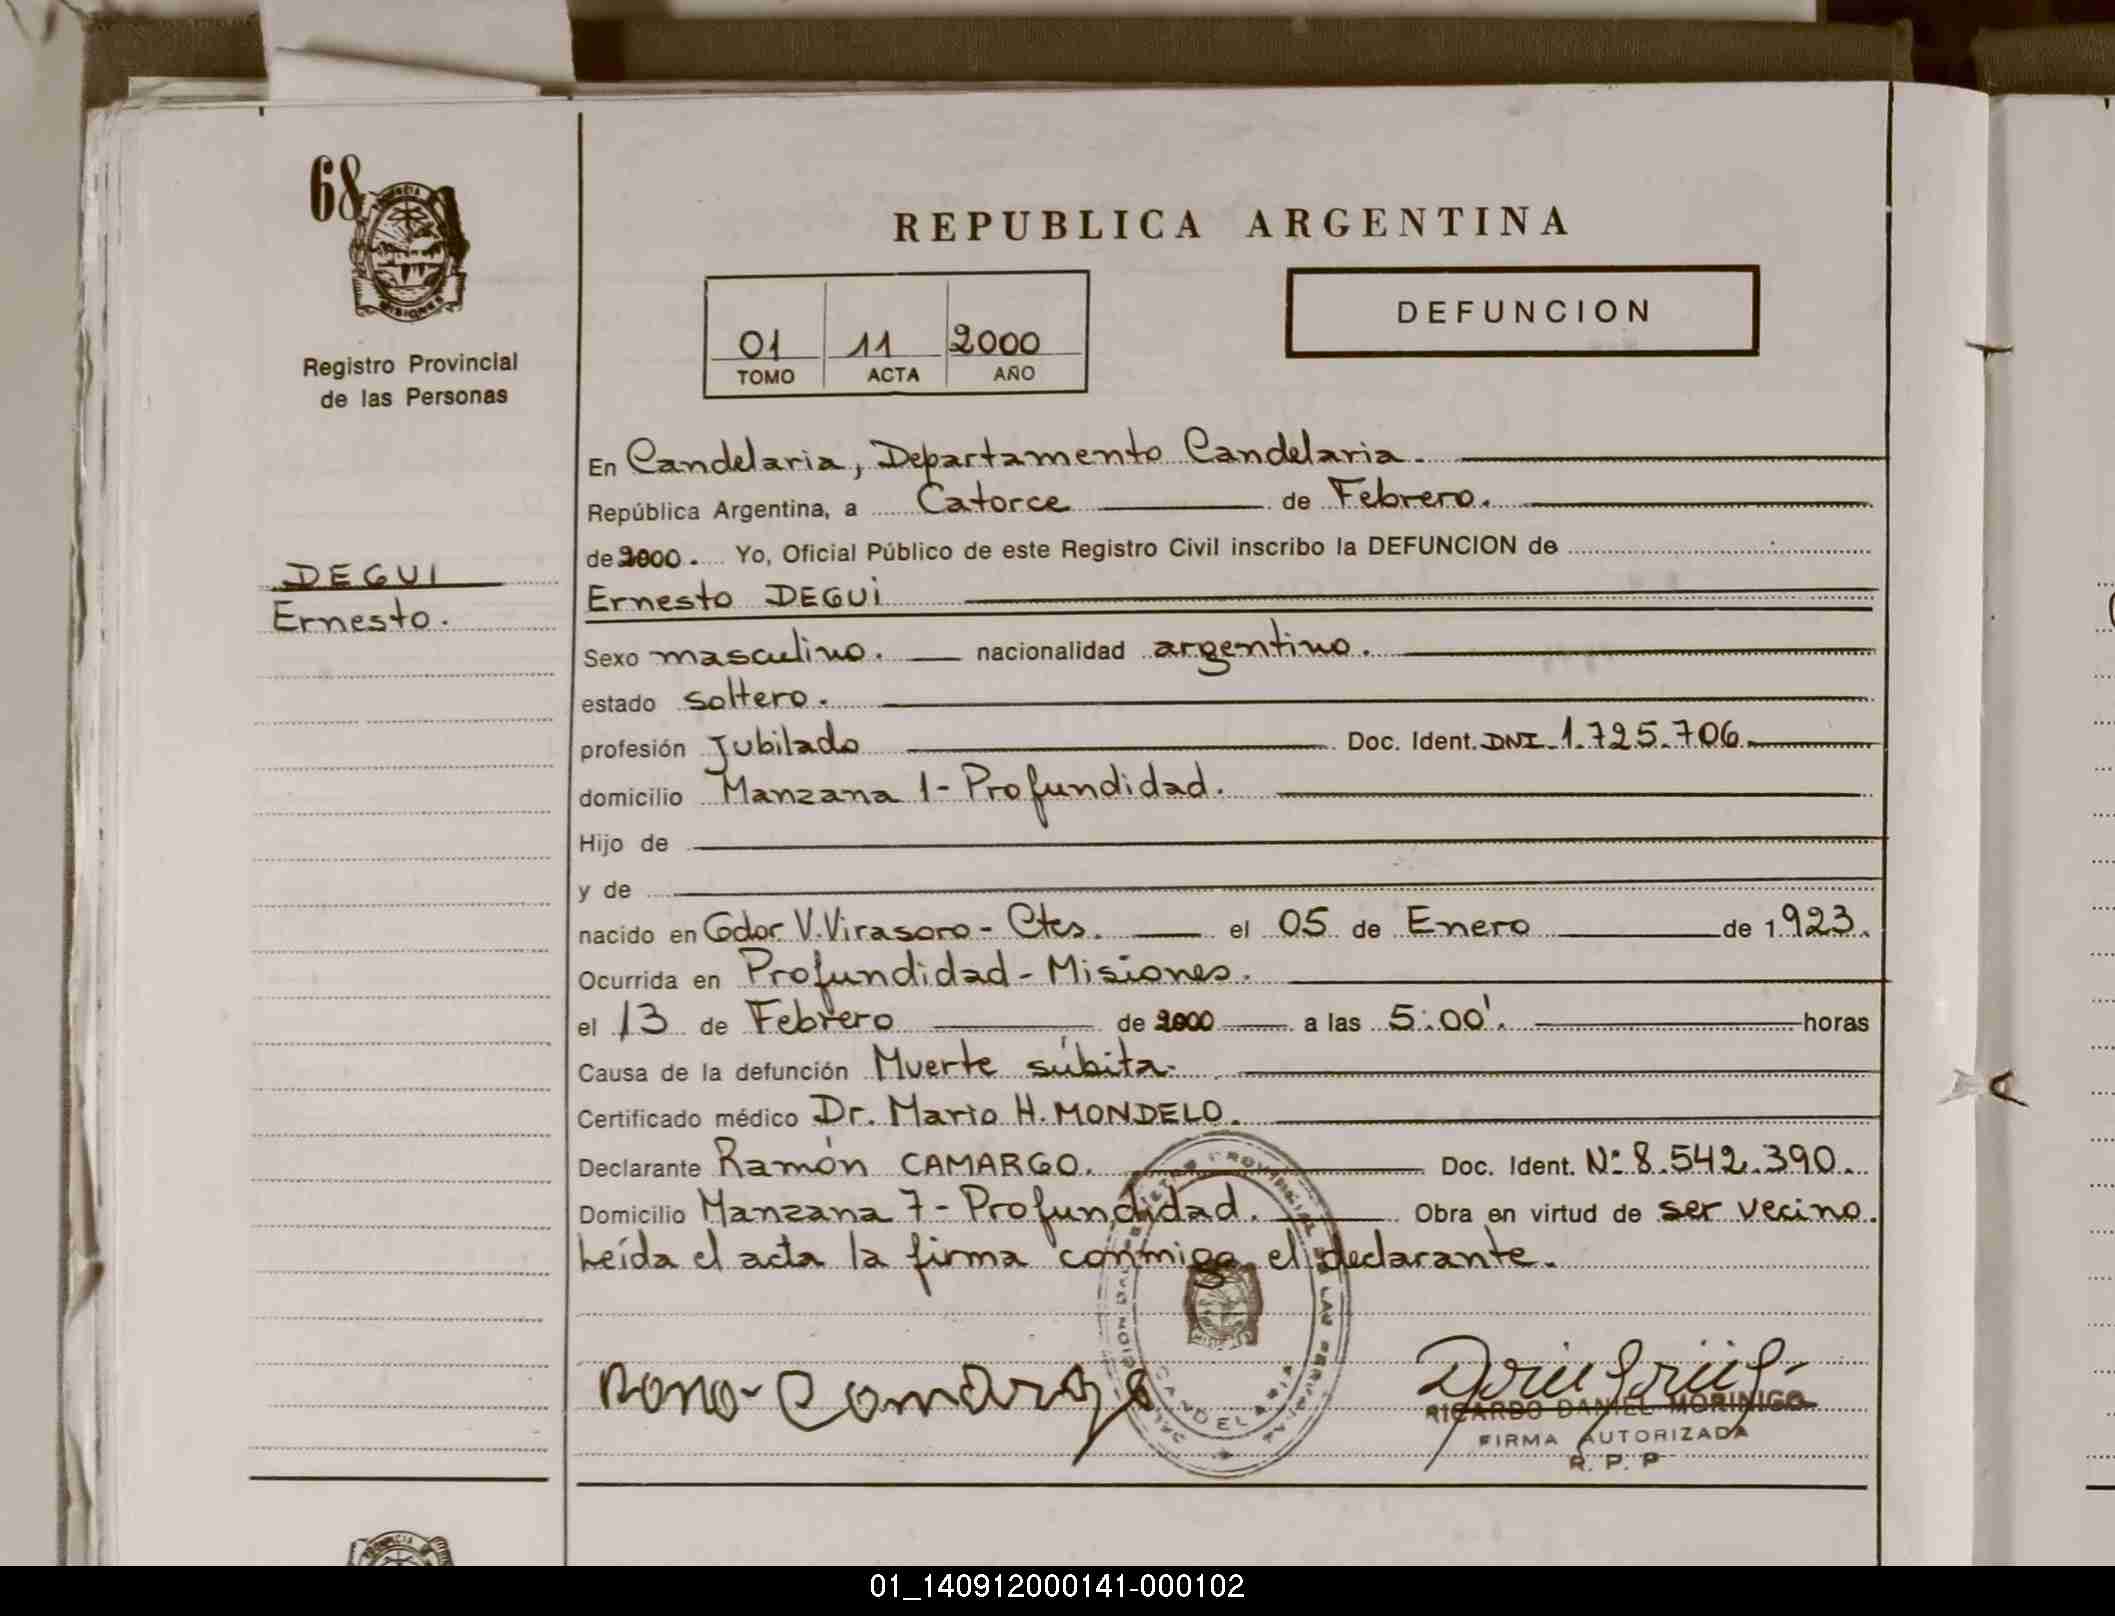 68
PROVINCIA DE
MISIONES
Registro Provincial
de las Personas
DEGUI
Ernesto.
REPUBLICA ARGENTINA
01 11 2000
TOMO ACTA AÑO
DEFUNCION
En Candelaria, Departamento Candelaria.
República Argentina, a Catorce de Febrero.
de 2000. Yo, Oficial Público de este Registro Civil inscribo la DEFUNCION de
Ernesto DEGUI
Sexo masculino. nacionalidad argentino.
estado soltero.
profesión Jubilado Doc. Ident. DNI. 1.725.706.
domicilio Manzana 1- Profundidad.
Hijo de
y de
nacido en Gdor V. Virasoro - Ctes. el 05 de Enero de 1923.
Ocurrida en Profundidad - Misiones.
el 13 de Febrero de 2000 a las 5:00'. horas
Causa de la defunción Muerte súbita.
Certificado médico Dr. Mario H. MONDELO.
Declarante Ramón CAMARGO. Doc. Ident. Nº 8.542.390.
Domicilio Manzana 7- Profundidad. Obra en virtud de ser vecino.
Leída el acta la firma conmigo el declarante.
CANDELARIA
RICARDO DANIEL MORINIGO
FIRMA AUTORIZADA
R. P. P
01_140912000141-000102